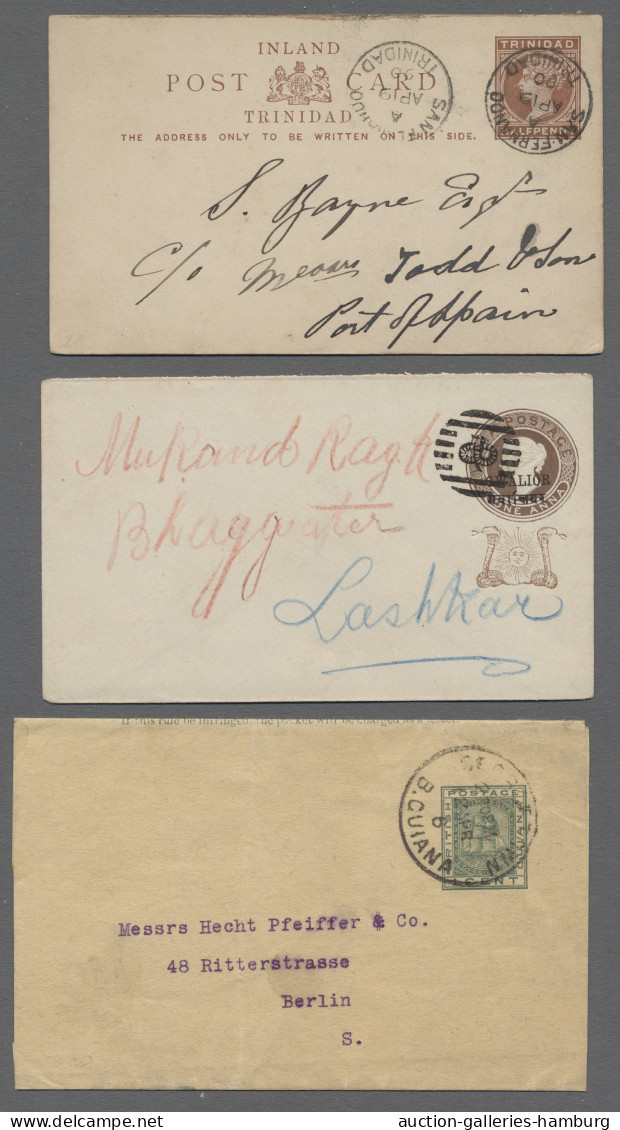 INLAND
POST CARD
TRINIDAD
THE ADDRESS ONLY TO BE WRITTEN ON THIS SIDE.
TRINIDAD
HALFPENNY
SAN-FERNANDO
A
AP 19
90
TRINIDAD
SAN-FERNANDO
A
AP 19
90
TRINIDAD
S. Bayne Esqr
c/o Messrs Todd & Son
Port of Spain
POSTAGE
GWALIOR
ग्वालियर
ONE ANNA
Mukand Rag
Bhaggwater
Lashkar
If this rule be infringed, the packet will be charged as a letter.
BRITISH
POSTAGE
GUIANA
1 CENT
B. GUIANA
Messrs Hecht Pfeiffer & Co.
48 Ritterstrasse
Berlin
S.
auction-galleries-hamburg.com